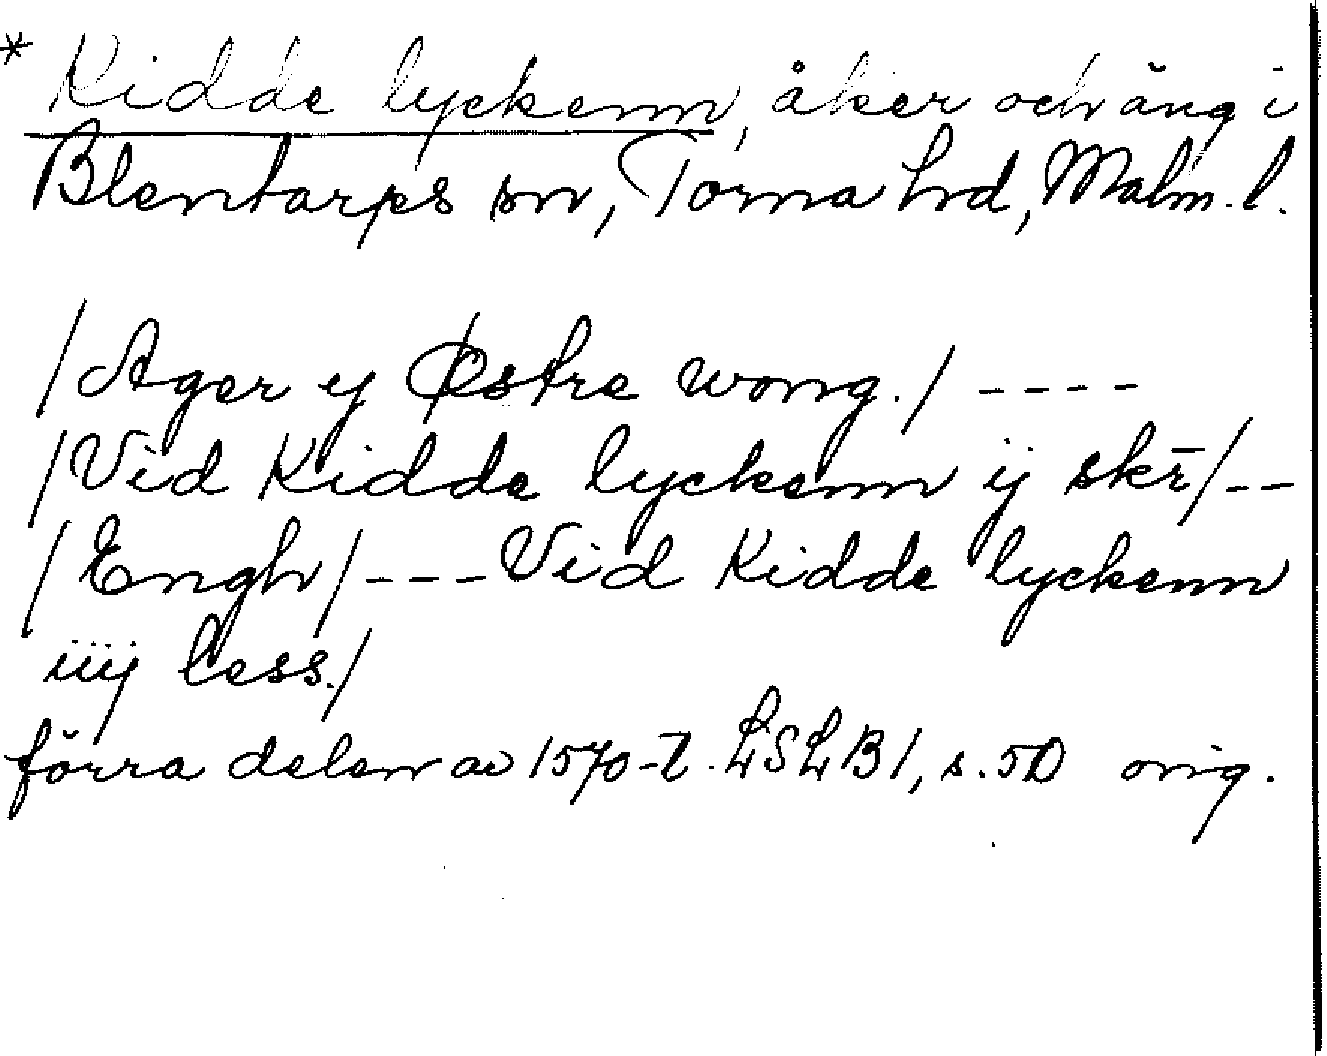 * Kidde lyckenn, åker och äng i
Blentarps sn, Torna hd, Malm. l.
/Ager y Østre wong./ ----
/Vid Kidde lyckenn ij skr̄/--
/Engh/---Vid Kidde lyckenn
iiij less./
förra delen av 1570-t. LSLB1, s. 50 orig.